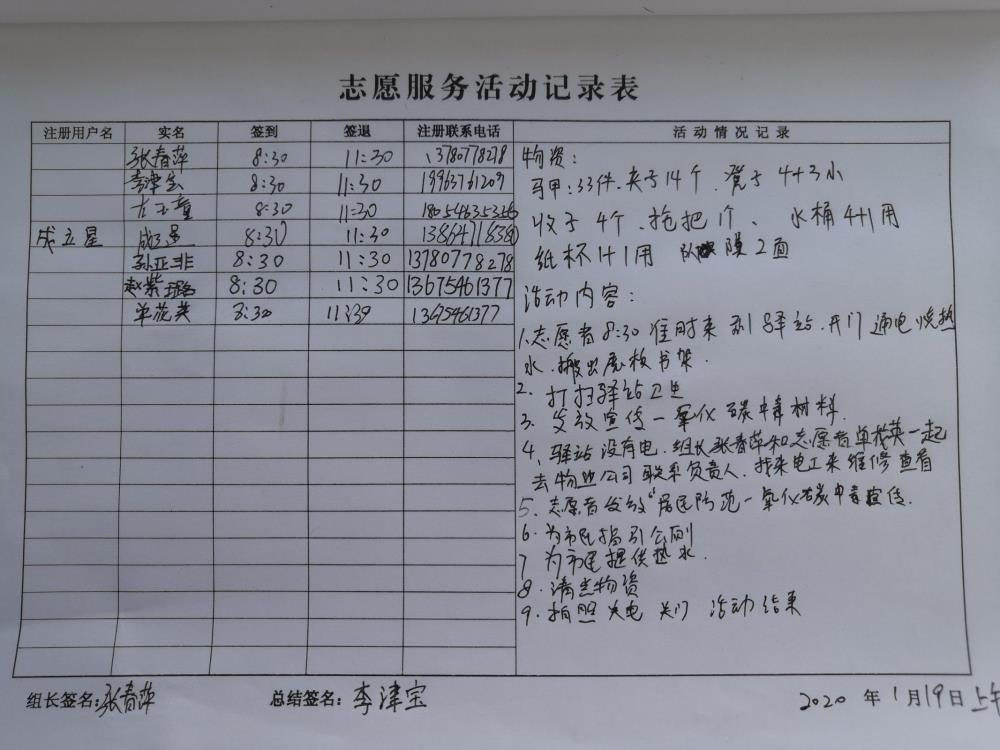 志愿服务活动记录表
注册用户名 实名 签到 签退 注册联系电话 活动情况记录
张春萍 8:30 11:30 13780778278
李津宝 8:30 11:30 19963761209
左玉童 8:30 11:30 18054635356
成立星 成立星 8:30 11:30 13864716380
孙亚非 8:30 11:30 13780778278
赵紫璐 8:30 11:30 13675461377
单花英 8:30 11:30 13675461377
物资:
马甲:33件.夹子14个.凳子4+3小
收子4个、拖把1个、水桶4+1用
纸杯1+1用 队 膜2面
活动内容:
1.志愿者8:30准时来到驿站.开门通电烧热
水.搬出展板书架.
2. 打扫驿站卫生
3. 发放宣传一氧化碳中毒材料.
4、驿站没有电.组长张春萍和志愿者单花英一起
去物业公司联系负责人.找来电工来维修查看
5. 志愿者发放"居民防范一氧化碳中毒宣传.
6. 为市民指引公厕
7 为市民提供热水.
8. 清点物资
9. 拍照 关电 关门 活动结束
组长签名:张春萍 总结签名:李津宝 2020年1月19日上午